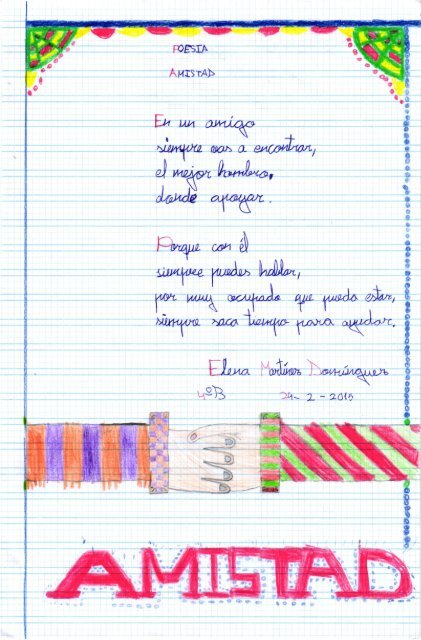 POESIA
AMISTAD
En un amigo
siempre vas a encontrar,
el mejor hombro,
donde apoyar.
Porque con él
siempre puedes hablar,
por muy ocupado que pueda estar,
siempre saca tiempo para ayudar.
Elena Martínez Domínguez
4ºB 24-2-2015
AMISTAD